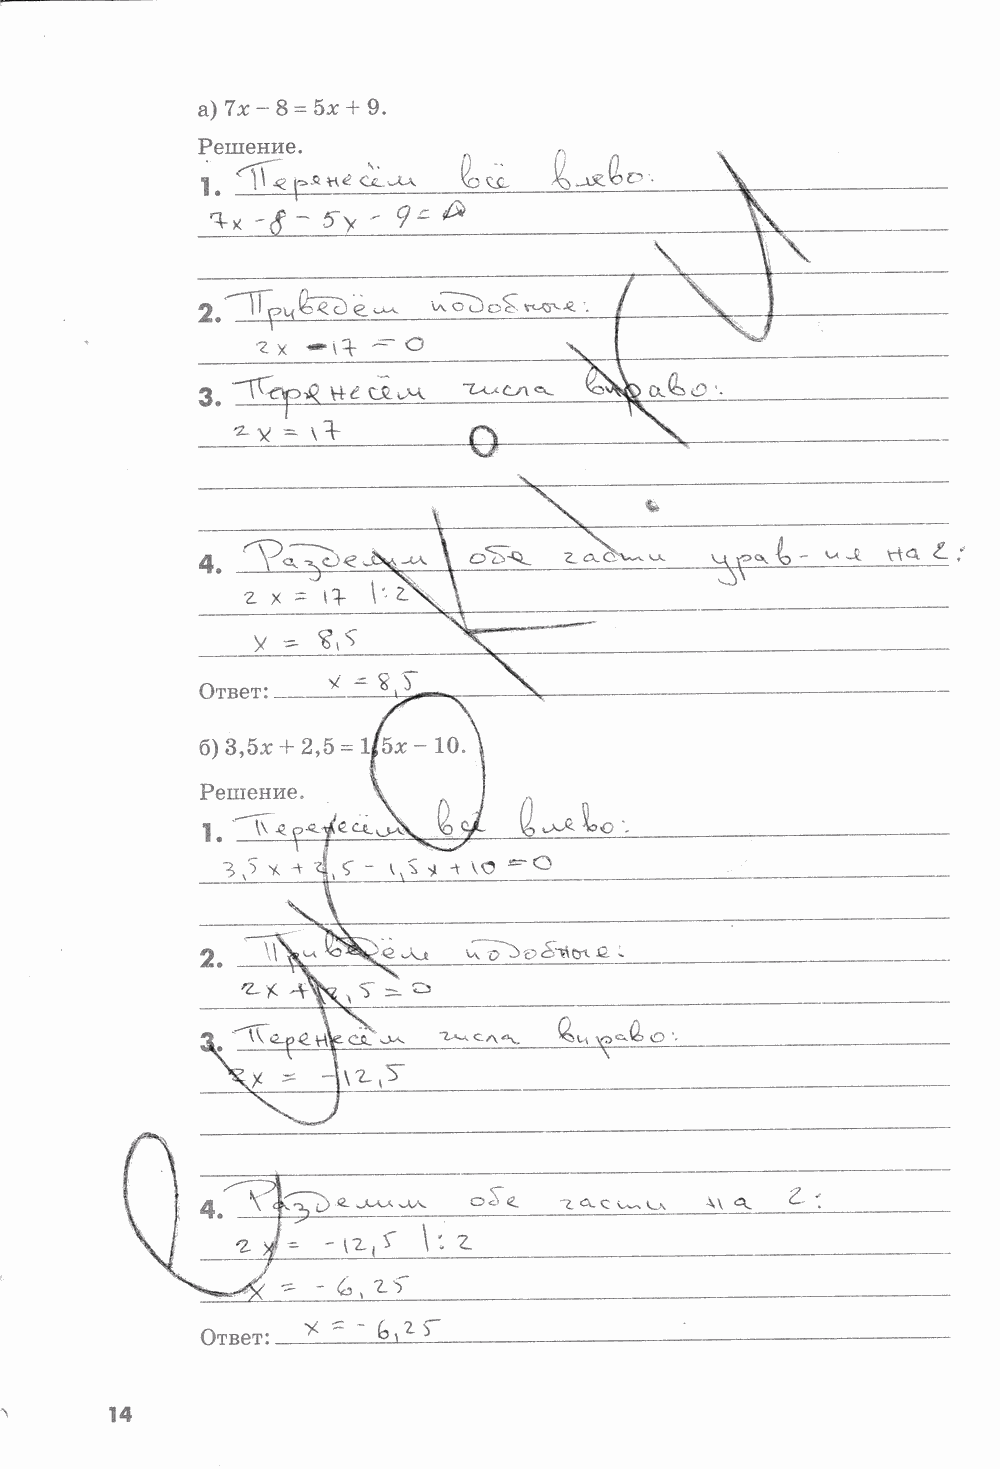 а) 7x − 8 = 5x + 9.
Решение.
1. Перенесём всё влево:
7x − 8 − 5x − 9 = 0
2. Приведём подобные:
2x − 17 = 0
3. Перенесём числа вправо:
2x = 17
4. Разделим обе части урав-ия на 2:
2x = 17 |:2
x = 8,5
Ответ: x = 8,5
б) 3,5x + 2,5 = 1,5x − 10.
Решение.
1. Перенесём всё влево:
3,5x + 2,5 − 1,5x + 10 = 0
2. Приведём подобные:
2x + 12,5 = 0
3. Перенесём числа вправо:
2x = −12,5
4. Разделим обе части на 2:
2x = −12,5 |:2
x = −6,25
Ответ: x = −6,25
14